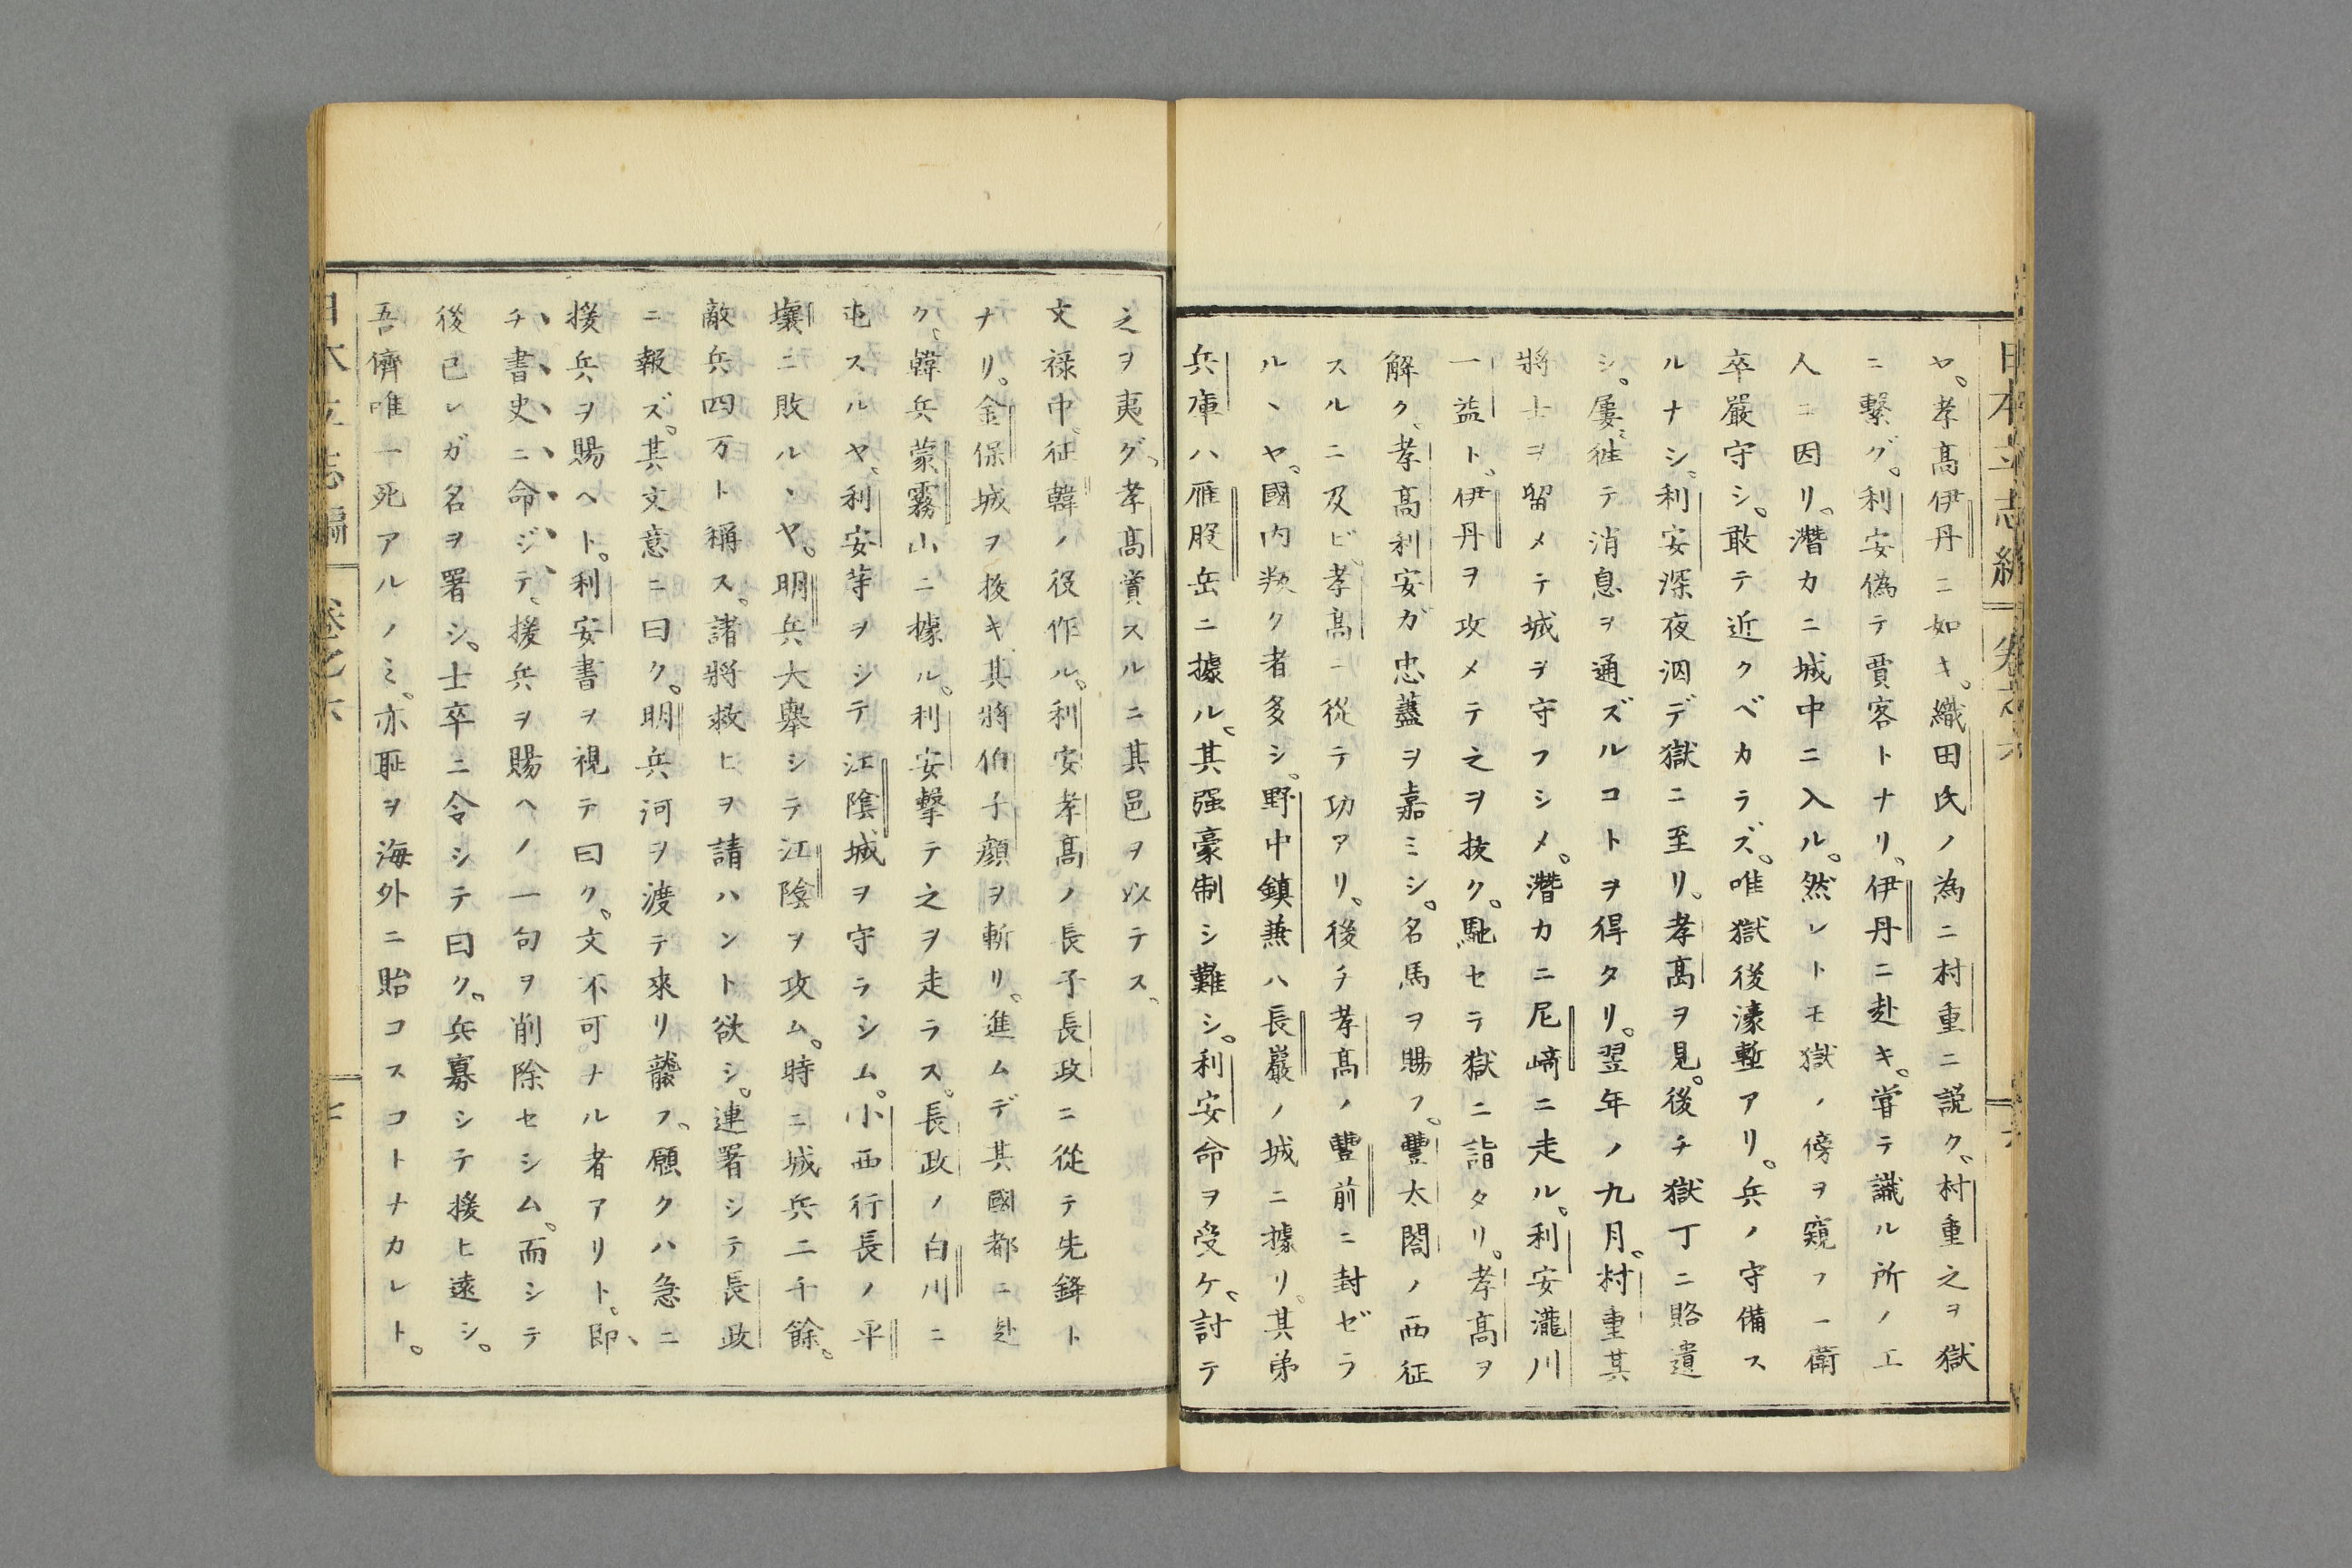 日本立志編 卷之六 六
ヤ。孝高伊丹ニ如キ。織田氏ノ為ニ村重ニ説ク、村重之ヲ獄
ニ繋グ。利安偽テ賈客トナリ、伊丹ニ赴キ。嘗テ識ル所ノ工
人ニ因リ。潛カニ城中ニ入ル。然レトモ獄ノ傍ヲ窺フ一衛
卒嚴守シ。敢テ近クベカラズ。唯獄後濠塹アリ。兵ノ守備ス
ルナシ。利安深夜泅デ獄ニ至リ。孝高ヲ見。後チ獄丁ニ賂遺
シ。屢〻徃テ消息ヲ通ズルコトヲ得タリ。翌年ノ九月。村重其
將士ヲ留メテ城ヲ守フシメ。潛カニ尼﨑ニ走ル。利安瀧川
一益ト、伊丹ヲ攻メテ之ヲ抜ク。馳セラ獄ニ詣タリ。孝高ヲ
解ク、孝高利安ガ忠藎ヲ嘉ミシ。名馬ヲ賜フ。豐太閤ノ西征
スルニ及ビ、孝高ニ從テ功アリ。後チ孝高ノ豐前ニ封ゼラ
ルヽヤ。國内叛ク者多シ。野中鎮兼ハ長巖ノ城ニ據リ。其弟
兵庫ハ雁股岳ニ據ル、其强豪制シ難シ。利安命ヲ受ケ、討テ
之ヲ夷グ、孝高賞スルニ其邑ヲ以テス、
文禄中、征韓ノ役作ル。利安孝高ノ長子長政ニ從テ先鋒ト
ナリ。金保城ヲ抜キ、其將伯子顔ヲ斬リ。進ムデ其國都ニ赴
ク、韓兵蒙霧山ニ據ル。利安擊テ之ヲ走ラス。長政ノ白川ニ
屯スルヤ、利安等ヲシテ江陰城ヲ守ラシム。小西行長ノ平
壤ニ敗ルヽヤ。明兵大擧シテ江陰ヲ攻ム。時ニ城兵二千餘。
敵兵四万ト稱ス。諸將救ヒヲ請ハント欲シ。連署シテ長政
ニ報ズ。其文意ニ曰ク。明兵河ヲ渡テ來リ襲フ。願クハ急ニ
援兵ヲ賜ヘト。利安書ヲ視テ曰ク。文不可ナル者アリト。即
チ書史ニ命ジテ、援兵ヲ賜ヘノ一句ヲ削除セシム。而シテ
後己レガ名ヲ署シ。士卒ニ令シテ曰ク。兵寡シテ援ヒ遠シ。
吾儕唯一死アルノミ。亦耻ヲ海外ニ貽コスコトナカレト。
日本立志編 卷之六 七